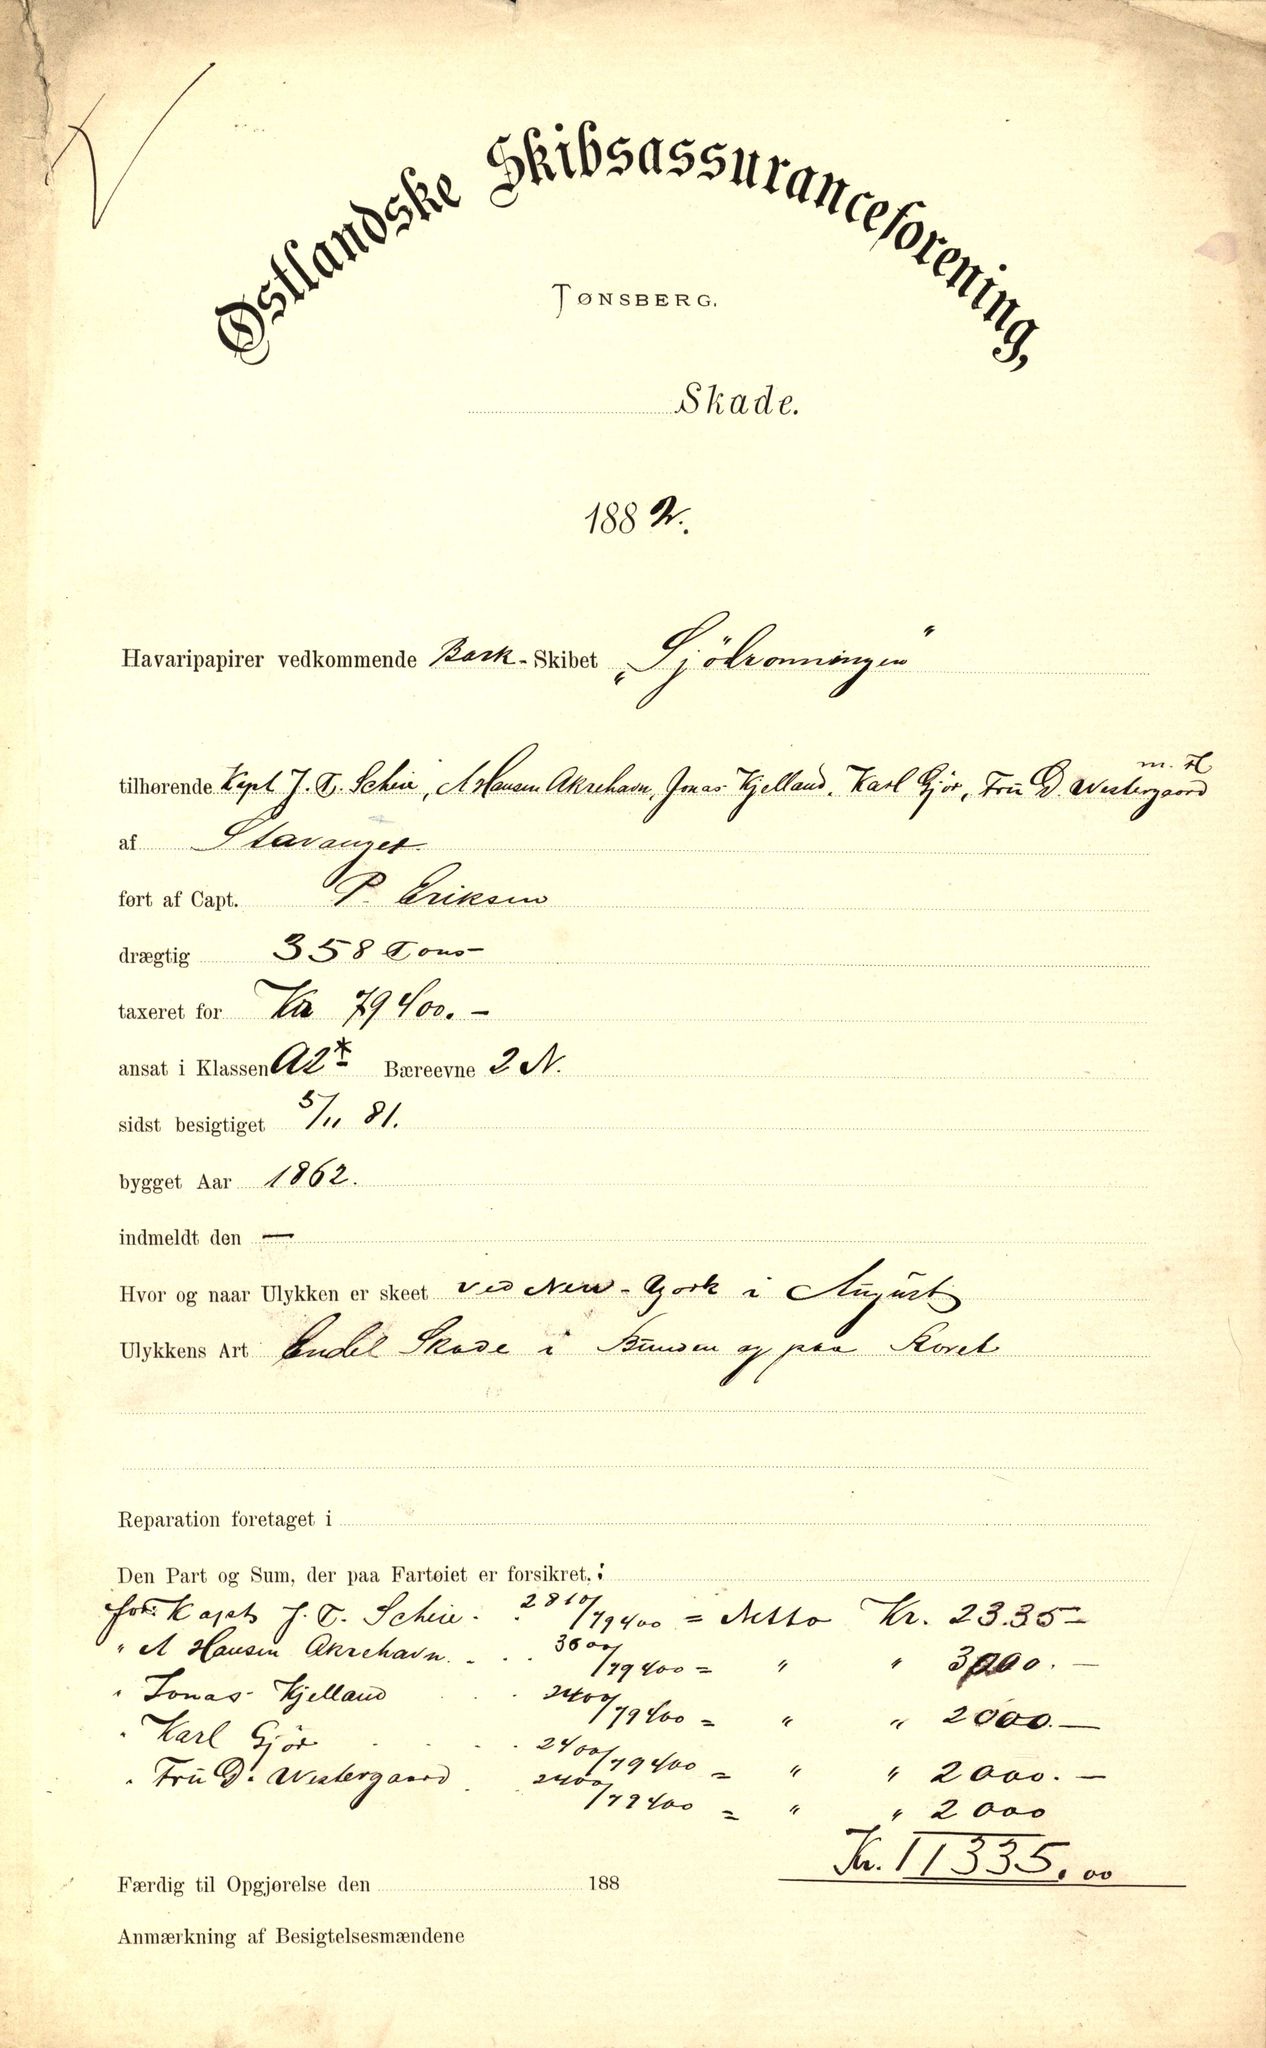 Østlandske Skibsassuranceforening,
TØNSBERG.
Skade.
1882.
Havaripapirer vedkommende Bark-Skibet „Sjödronningen"
tilhørende Kapt J. T. Scheie, A Hansen Akrehavn, Jonas Kjelland, Karl Gjör, Frü D. Westergaard m. fl
af Stavanger.
ført af Capt. P. Eriksen
drægtig 358 Tons
taxeret for Kr 79400.–
ansat i Klassen A2* Bæreevne 2 N.
sidst besigtiget 5/11 81.
bygget Aar 1862.
indmeldt den —
Hvor og naar Ulykken er skeet ved New-York i Augüst
Ulykkens Art Endel Skade i Bunden og paa Roret
Reparation foretaget i
Den Part og Sum, der paa Fartøiet er forsikret, :
for Kapt J. T. Scheie. 2810/79400 = Netto Kr. 2335–
" A Hansen Akrehavn. 3600/79400 = " " 3000.–
" Jonas Kjelland 2400/79400 = " " 2000.–
" Karl Gjör 2400/79400 = " " 2000.–
" Frü D. Westergaard 2400/79400 = " " 2000
Kr. 11335.00
Færdig til Opgjørelse den 188
Anmærkning af Besigtelsesmændene